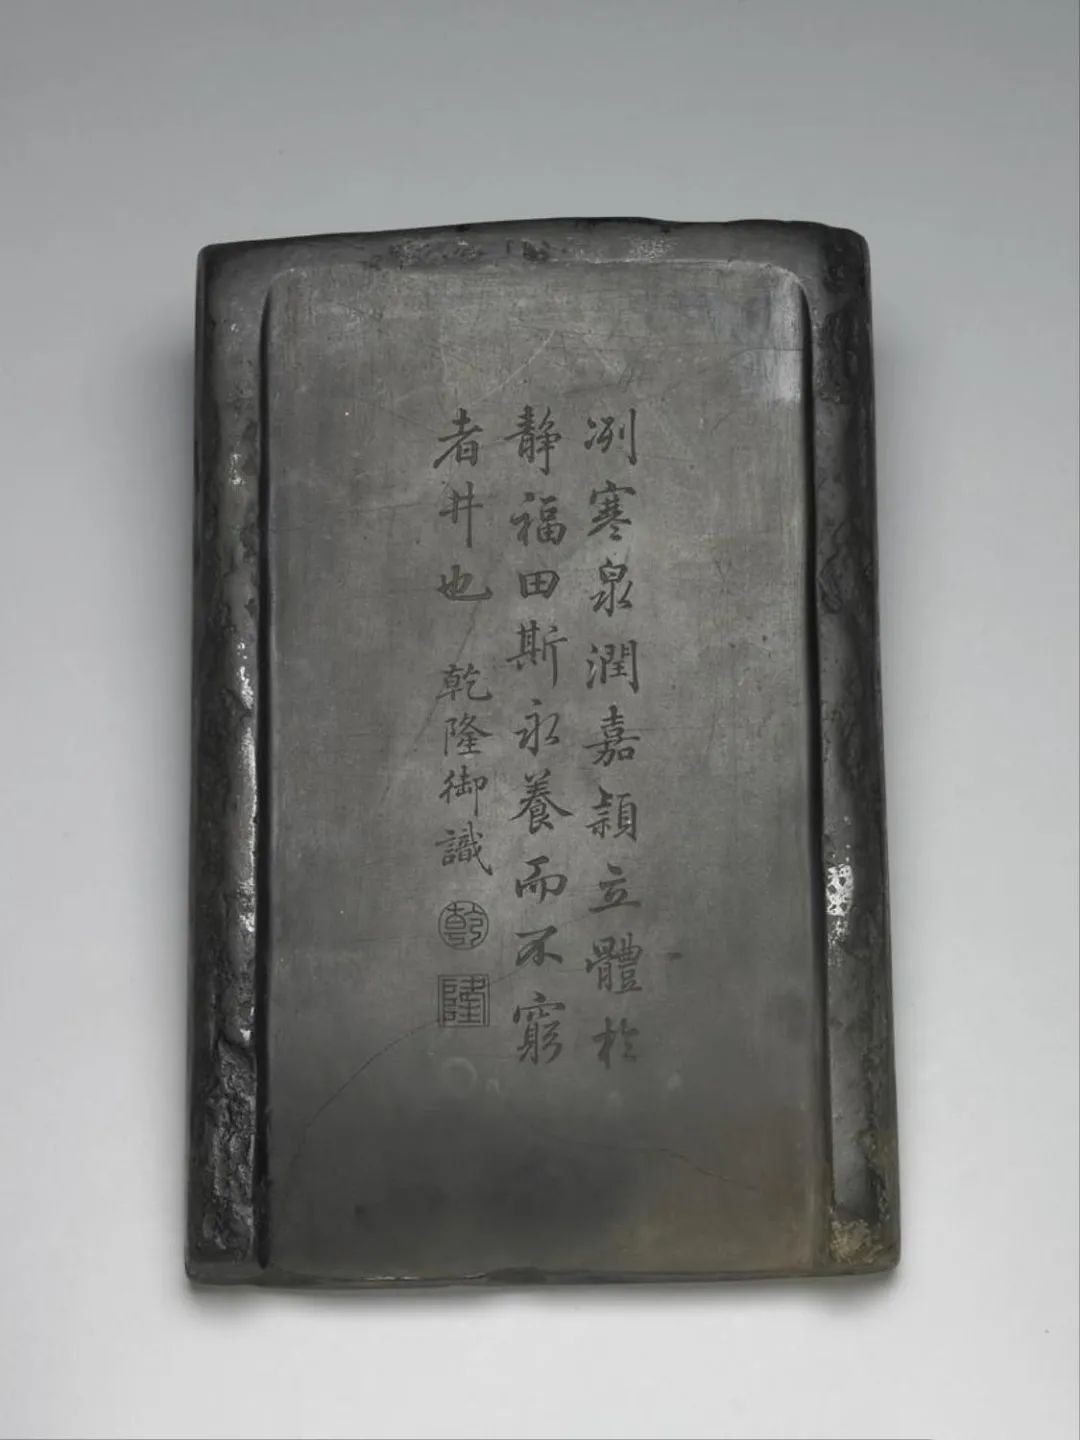 冽寒泉潤嘉穎立體於
靜福田斯永養而不窮
者井也 乾隆御識
乾
隆